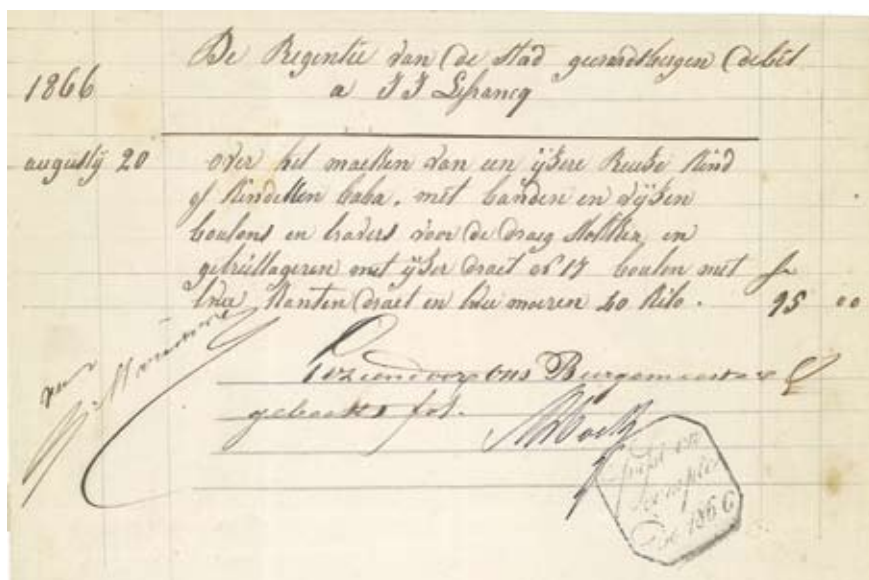 De Regentie van de Stad geerardsbergen debet
1866 a J J Lefrancq
augustij 20 over het maeken van een ijsere Reuse Kind
of Kindeken baba. met banden en vijsen
boulons en travers voor de draeg stokken en
getreillageren met ijser draet os 17 boulon met fr
twee kanten draet en twee moeren 40 Kilo. 95 00
Gezien door ons Burgemeester
geboekt fol.
1866